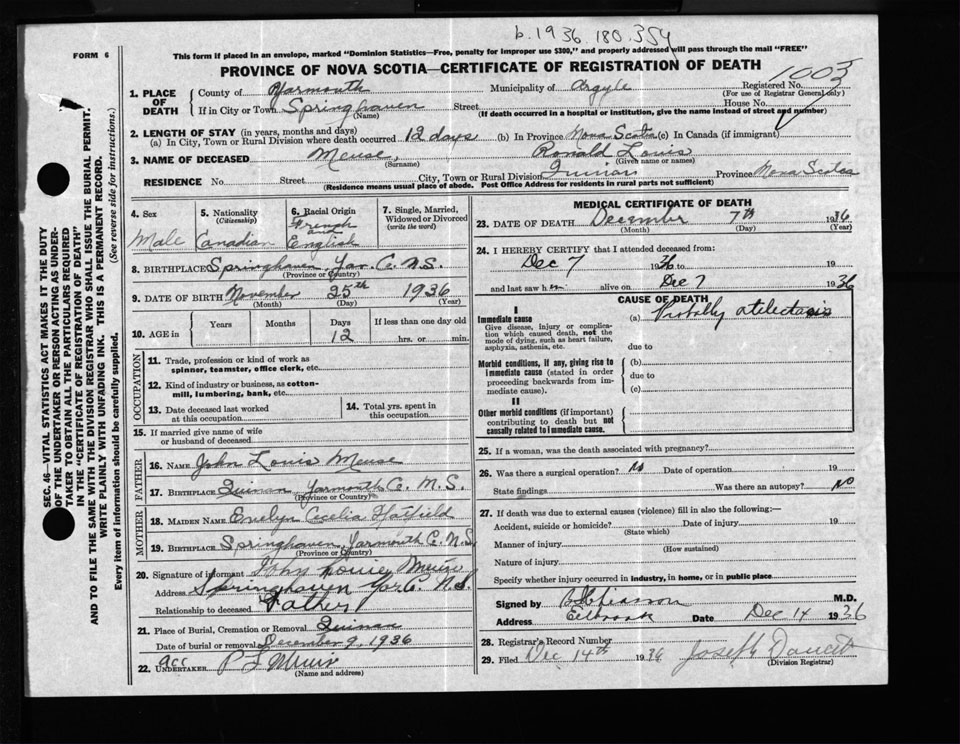 b. 1936 180.354
FORM 6
This form if placed in an envelope, marked "Dominion Statistics—Free, penalty for improper use $300," and properly addressed will pass through the mail "FREE"
PROVINCE OF NOVA SCOTIA—CERTIFICATE OF REGISTRATION OF DEATH
1003
SEC. 46—VITAL STATISTICS ACT MAKES IT THE DUTY
OF THE UNDERTAKER OR PERSON ACTING AS UNDER-
TAKER TO OBTAIN ALL THE PARTICULARS REQUIRED
IN THE "CERTIFICATE OF REGISTRATION OF DEATH"
AND TO FILE THE SAME WITH THE DIVISION REGISTRAR WHO SHALL ISSUE THE BURIAL PERMIT.
WRITE PLAINLY WITH UNFADING INK. THIS IS A PERMANENT RECORD.
Every item of information should be carefully supplied. (See reverse side for instructions.)
1. PLACE OF DEATH
County of Yarmouth Municipality of Argyle Registered No.
(For use of Registrar General only)
If in City or Town Springhaven Street House No.
(Name) (If death occurred in a hospital or institution, give the name instead of street and number)
2. LENGTH OF STAY (in years, months and days)
(a) In City, Town or Rural Division where death occurred 12 days (b) In Province Nova Scotia (c) In Canada (if immigrant)
3. NAME OF DECEASED Meuse, Ronald Louis
(Surname) (Given name or names)
RESIDENCE No. Street City, Town or Rural Division Quinan Province Nova Scotia
(Residence means usual place of abode. Post Office Address for residents in rural parts not sufficient)
4. Sex Male
5. Nationality (Citizenship) Canadian
6. Racial Origin French and English
7. Single, Married, Widowed or Divorced (write the word)
8. BIRTHPLACE Springhaven Yar. C. N.S.
(Province or Country)
9. DATE OF BIRTH November 25th 1936
(Month) (Day) (Year)
10. AGE in Years Months Days 12 If less than one day old hrs. or min.
OCCUPATION
11. Trade, profession or kind of work as spinner, teamster, office clerk, etc.
12. Kind of industry or business, as cotton-mill, lumbering, bank, etc.
13. Date deceased last worked at this occupation
14. Total yrs. spent in this occupation
15. If married give name of wife or husband of deceased
FATHER
16. NAME John Louis Meuse
17. BIRTHPLACE Quinan Yarmouth C. N.S.
(Province or Country)
MOTHER
18. MAIDEN NAME Evelyn Cecelia Hatfield
19. BIRTHPLACE Springhaven, Yarmouth C. N.S.
(Province or Country)
20. Signature of informant John
Address Springhaven Yar. C. N.S.
Relationship to deceased Father
21. Place of Burial, Cremation or Removal Quinan
Date of burial or removal December 9, 1936
22. acc UNDERTAKER
(Name and address)
MEDICAL CERTIFICATE OF DEATH
23. DATE OF DEATH December 7th 1936
(Month) (Day) (Year)
24. I HEREBY CERTIFY that I attended deceased from:
Dec 7 1936 to 19
and last saw him alive on Dec 7 1936
CAUSE OF DEATH
I
Immediate cause
Give disease, injury or complication which caused death, not the mode of dying, such as heart failure, asphyxia, asthenia, etc.
(a) Probably atelectasis
due to
Morbid conditions, if any, giving rise to immediate cause (stated in order proceeding backwards from immediate cause).
(b)
due to
(c)
II
Other morbid conditions (if important) contributing to death but not causally related to immediate cause.
25. If a woman, was the death associated with pregnancy?
26. Was there a surgical operation? No Date of operation 19
State findings Was there an autopsy? No
27. If death was due to external causes (violence) fill in also the following:—
Accident, suicide or homicide? Date of injury 19
(State which)
Manner of injury
(How sustained)
Nature of injury
Specify whether injury occurred in industry, in home, or in public place
Signed by M.D.
Address Eelbrook Date Dec 14 1936
28. Registrar's Record Number
29. Filed Dec 14th 1936 Joseph Doucett
(Division Registrar)